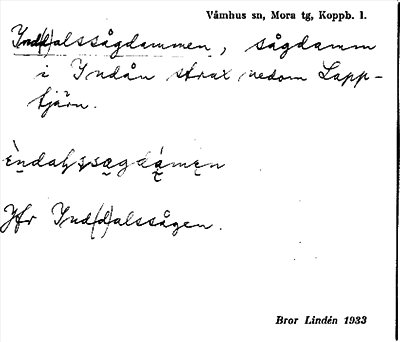 Våmhus sn, Mora tg, Koppb. l.
Ind(d)alssågdammen, sågdamm
i Indån strax nedom Lapp-
tjärn.
Jfr Ind(d)alssågen.
Bror Lindén 1933